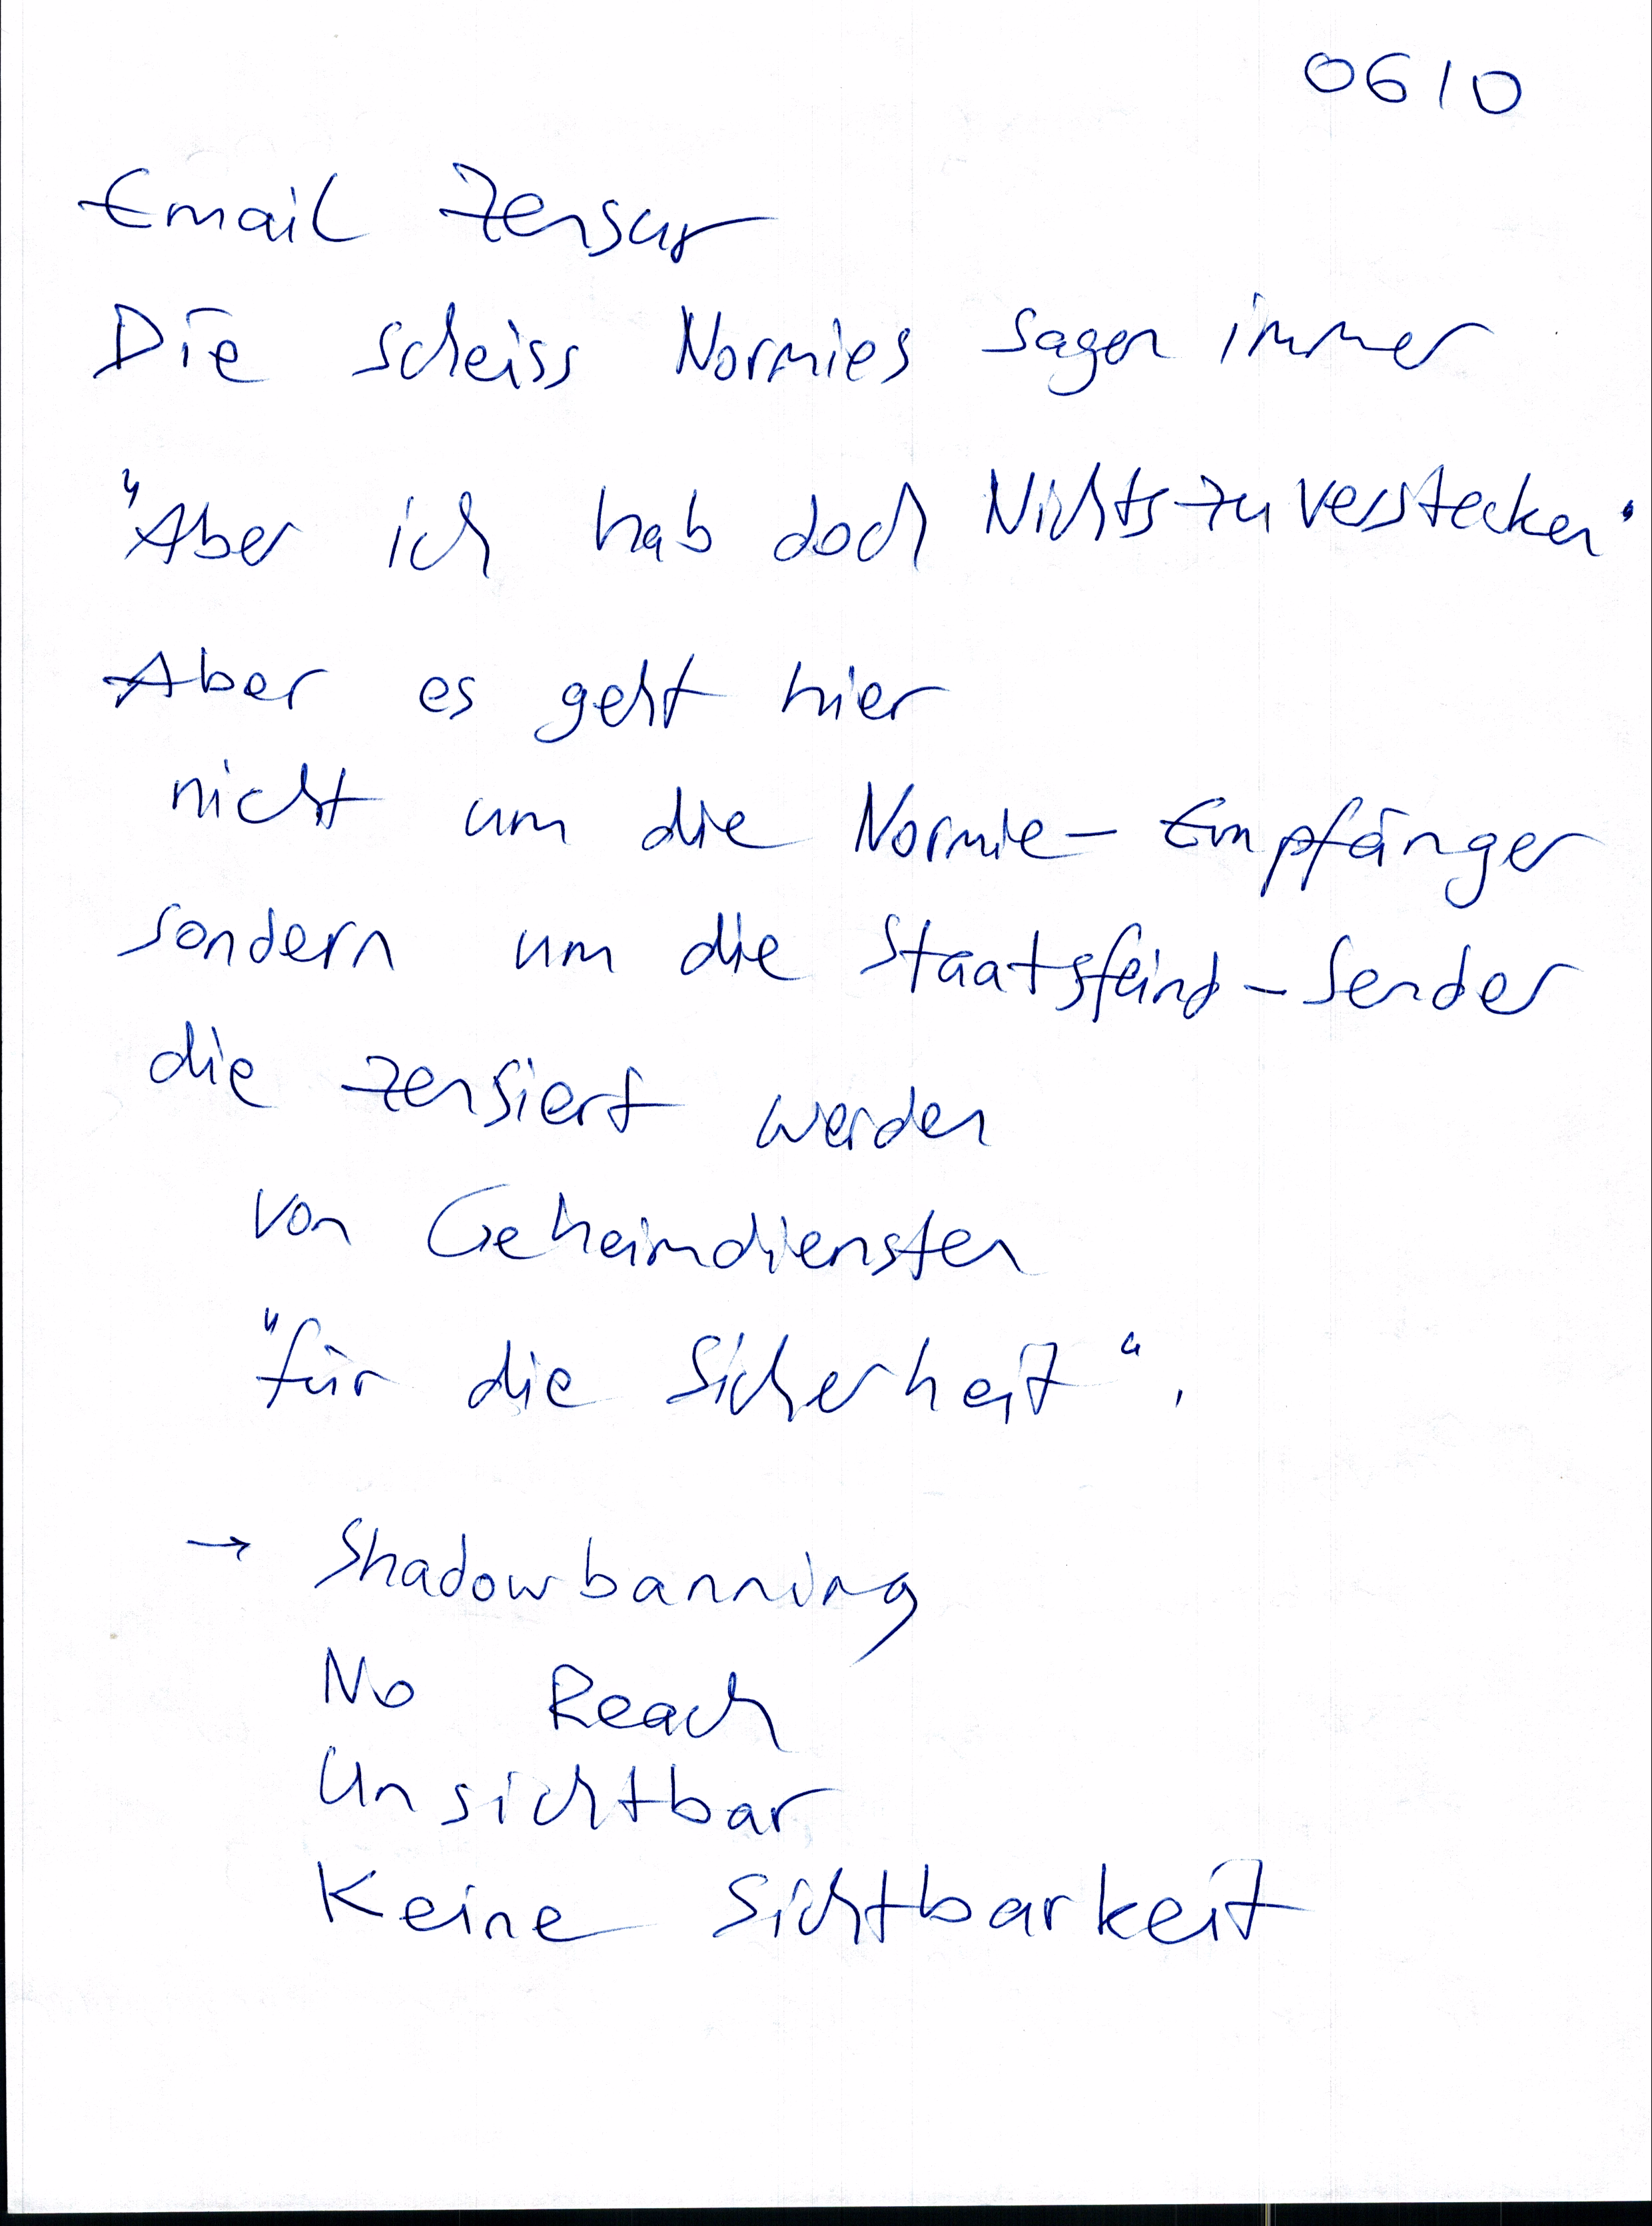 0610
Email Zensur
Die scheiss Normies sagen immer
"Aber ich hab doch Nichts zu verstecken"
Aber es geht hier
nicht um die Normie-Empfänger
sondern um die Staatsfeind-Sender
die zensiert werden
von Geheimdiensten
"für die Sicherheit".
→ Shadowbanning
No Reach
Unsichtbar
Keine Sichtbarkeit